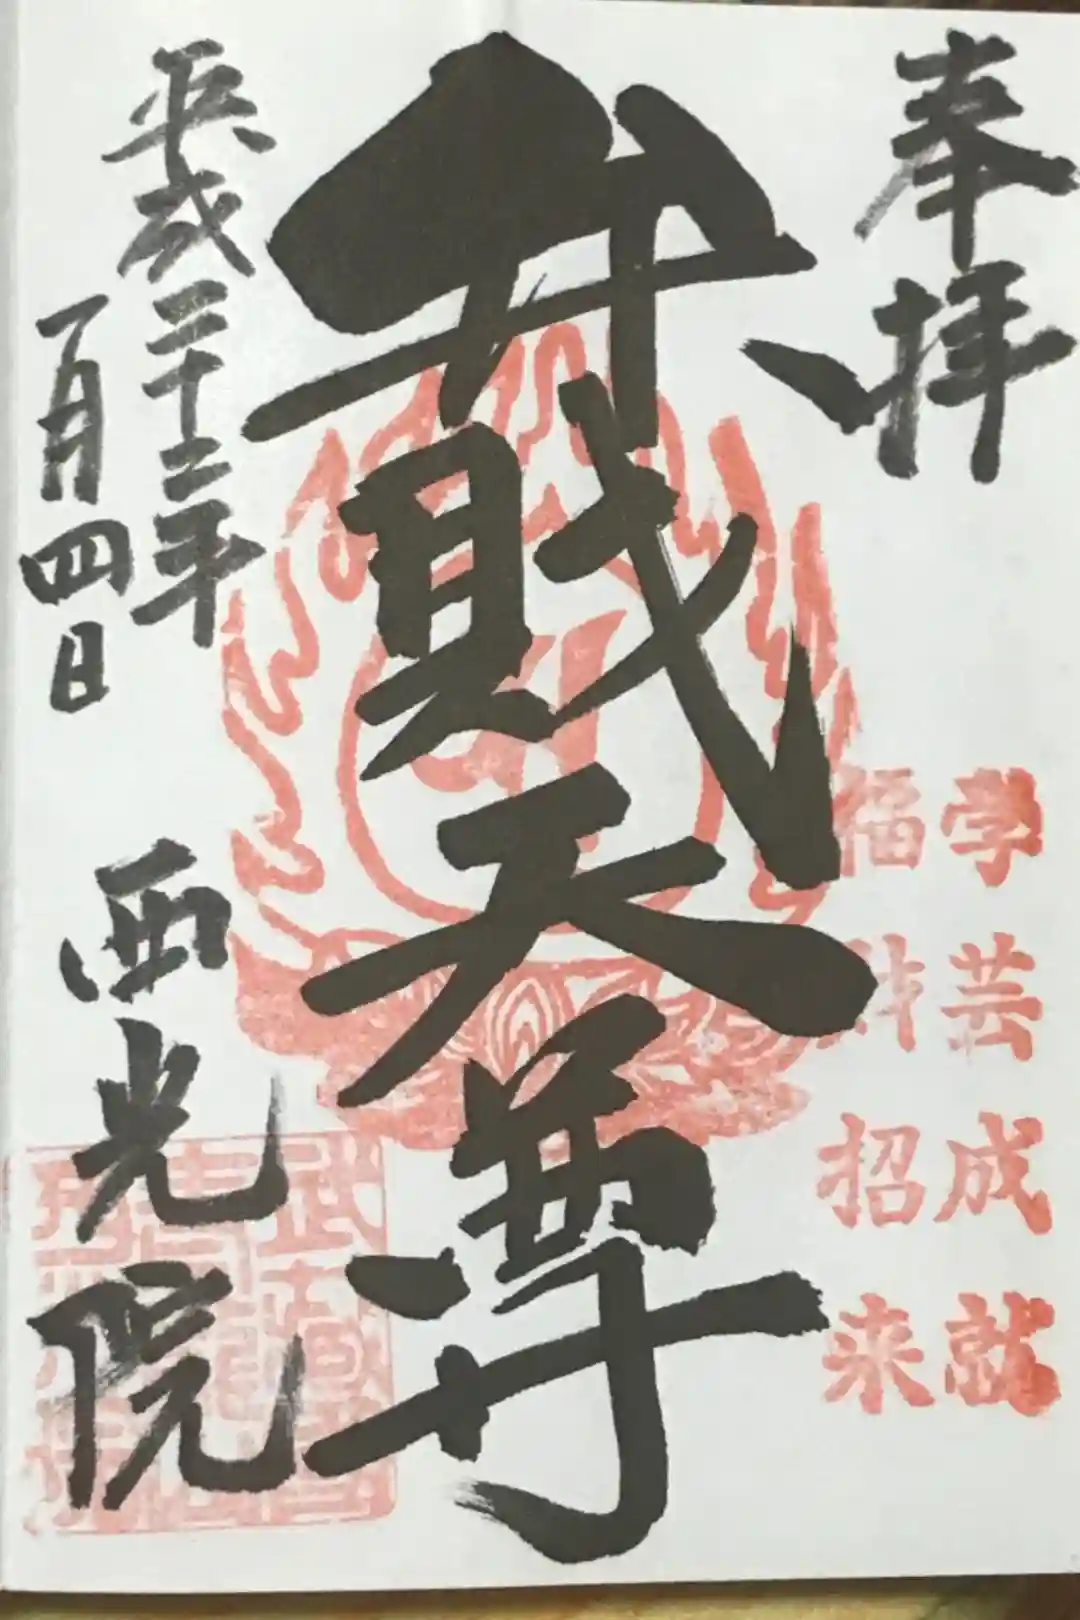 奉拝
学芸成就
福財招来
弁財天尊
平成二十二年
一月四日
西光院